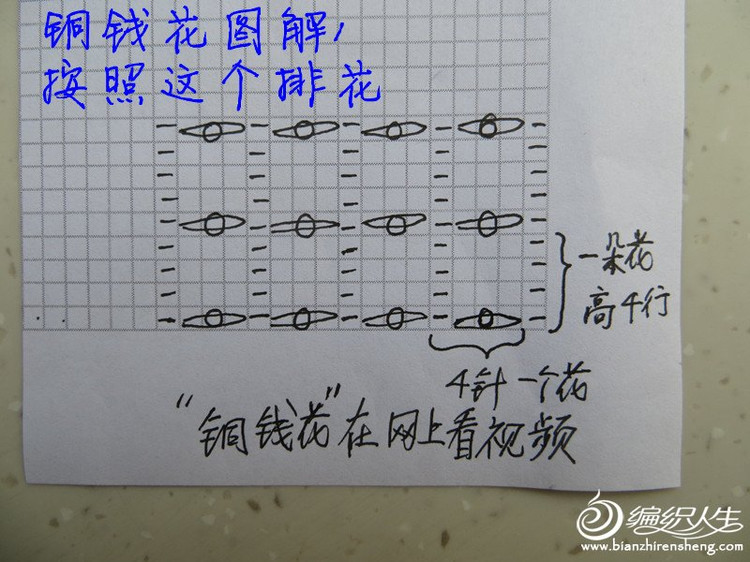 铜钱花图解,
按照这个排花
一朵花
高4行
4针一个花
"铜钱花"在网上看视频
编织人生
www.bianzhirensheng.com